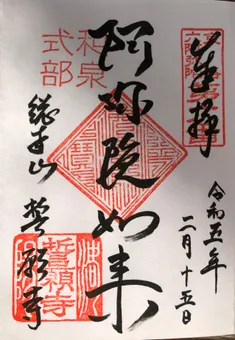 奉拝
令和五年
二月十五日
阿弥陀如来
和泉
式部
総本山
誓願寺
誓願寺